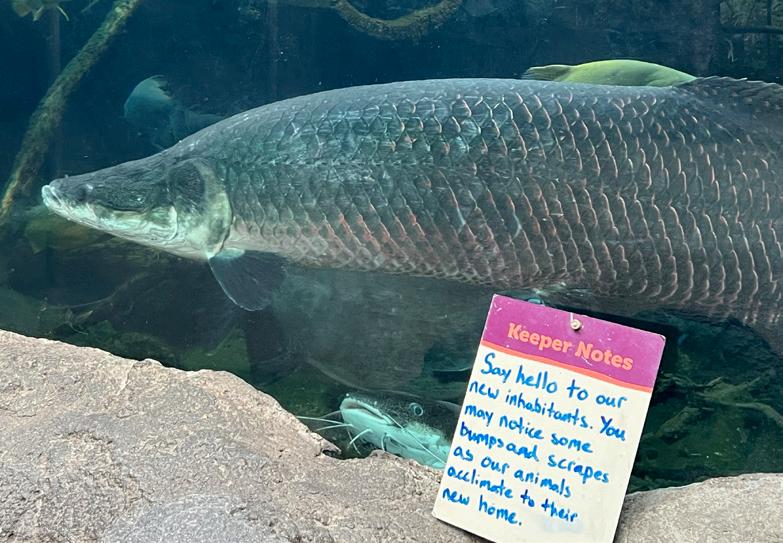 Keeper Notes
Say hello to our
new inhabitants. You
may notice some
bumps and scrapes
as our animals
acclimate to their
new home.